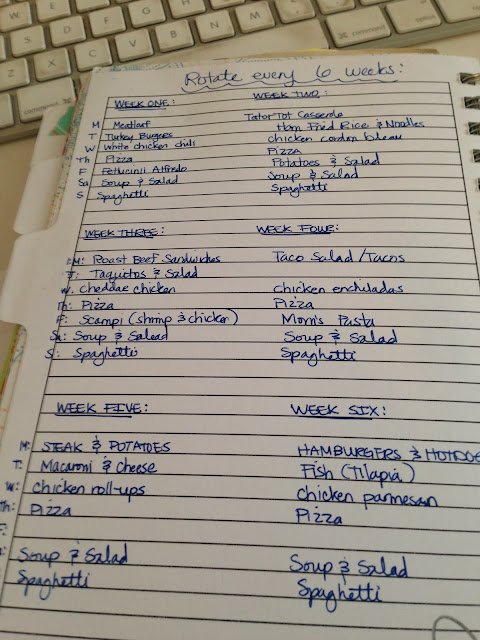 Rotate every 6 weeks:
WEEK ONE: WEEK TWO:
M Meatloaf Tator Tot Casserole
T Turkey Burgers Ham Fried Rice & Noodles
W White chicken chili chicken cordon bleau
Th Pizza Pizza
F Fettucinii Alfredo Potatoes & Salad
Sa Soup & Salad Soup & Salad
S Spaghetti Spaghetti
WEEK THREE: WEEK FOUR:
M: Roast Beef Sandwiches Taco Salad/Tacos
T: Taquitos & Salad
W: Cheddar chicken chicken enchiladas
Th: Pizza Pizza
F: Scampi (shrimp & chicken) Mom's Pasta
Sa: Soup & Salad Soup & Salad
S: Spaghetti Spaghetti
WEEK FIVE: WEEK SIX:
M: STEAK & POTATOES HAMBURGERS & HOTDOG
T: Macaroni & Cheese Fish (Tilapia)
W: chicken roll-ups chicken parmesan
Th: Pizza Pizza
F:
Soup & Salad Soup & Salad
Spaghetti Spaghetti